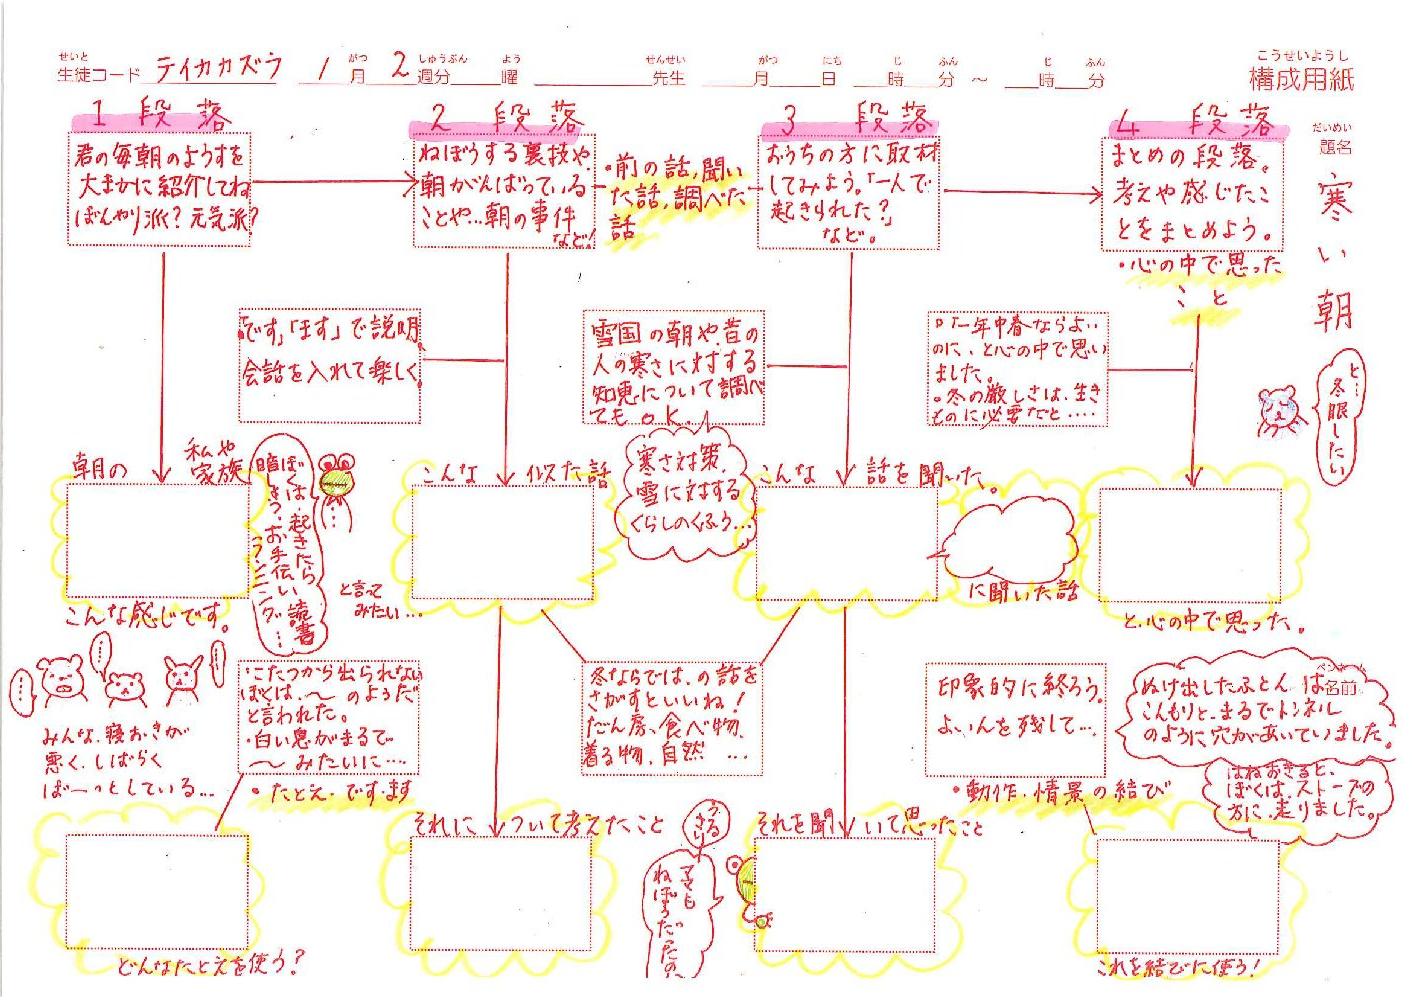 せいと がつ しゅうぶん よう せんせい がつ にち じ ふん じ ふん
生徒コード テイカカズラ 1月 2週分 曜 先生 月 日 時 分 ～ 時 分
こうせいようし
構成用紙
だいめい
題名
寒い朝
1 段落
君の毎朝のようすを
大まかに紹介してね
ぼんやり派？元気派？
2 段落
ねぼうする裏技や、
朝がんばっている
ことや…朝の事件
など！
・前の話,聞い
た話,調べた
話
3 段落
おうちの方に取材
してみよう。「一人で
起きられた？」
など。
4 段落
まとめの段落。
考えや感じたこ
とをまとめよう。
・心の中で思った
こと
「です」「ます」で説明。
会話を入れて楽しく。
雪国の朝や昔の
人の寒さに対する
知恵について調べ
てもO.K.
○「一年中春ならよい
のに」と心の中で思い
ました。
○冬の厳しさは、生き
ものに必要だと…‥
と…
冬眠したい
朝の 私や
家族
ぼくは、起きたら
暗しょう、お手伝い、読書
う！ニング…
と言って
みたい…
こんな感じです。
こんな 似た話
寒さ対策、
雪に対する
くらしのくふう…
こんな 話を聞いた。
に聞いた話
と、心の中で思った。
みんな、寝おきが
悪く、しばらく
ぼーっとしている…
・こたつから出られない
ぼくは、～のようだ
と言われた。
・白い息がまるで
～みたいに…
・たとえ・ですます
冬ならでは、の話を
さがすといいね！
だん房、食べ物、
着る物、自然…
印象的に終ろう。
よいんを残して…
・動作・情景の結び
名前
ぬけ出したふとんは
こんもりと、まるでトンネル
のように穴があいていました。
はねおきると、
ぼくは、ストーブの
方に、走りました。
どんなたとえを使う？
それに ついて考えたこと
うるさい
ママも
ねぼうだったの
それを聞いて思ったこと
これを結びに使う！